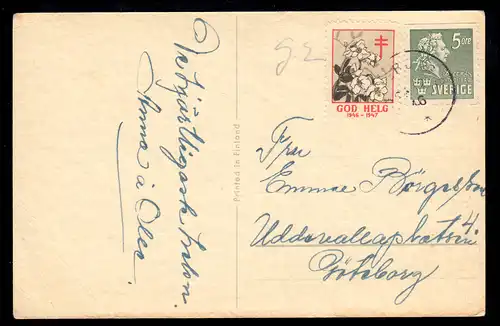 De hjärtligaste
Anna & Olle.
Printed in Finland
g2
GOD HELG
1946 - 1947
5 öre
SVERIGE
Fru
Emma Börgesson
Uddevallaplatsen 4.
Göteborg